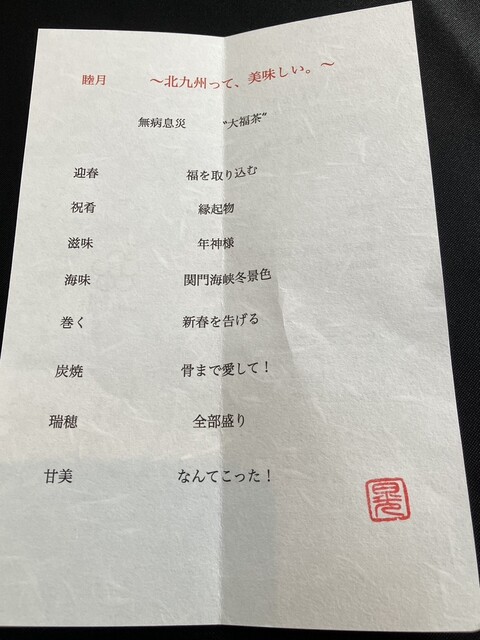 睦月 ～北九州って、美味しい。～
無病息災 “大福茶”
迎春 福を取り込む
祝肴 縁起物
滋味 年神様
海味 関門海峡冬景色
巻く 新春を告げる
炭焼 骨まで愛して！
瑞穂 全部盛り
甘美 なんてこった！